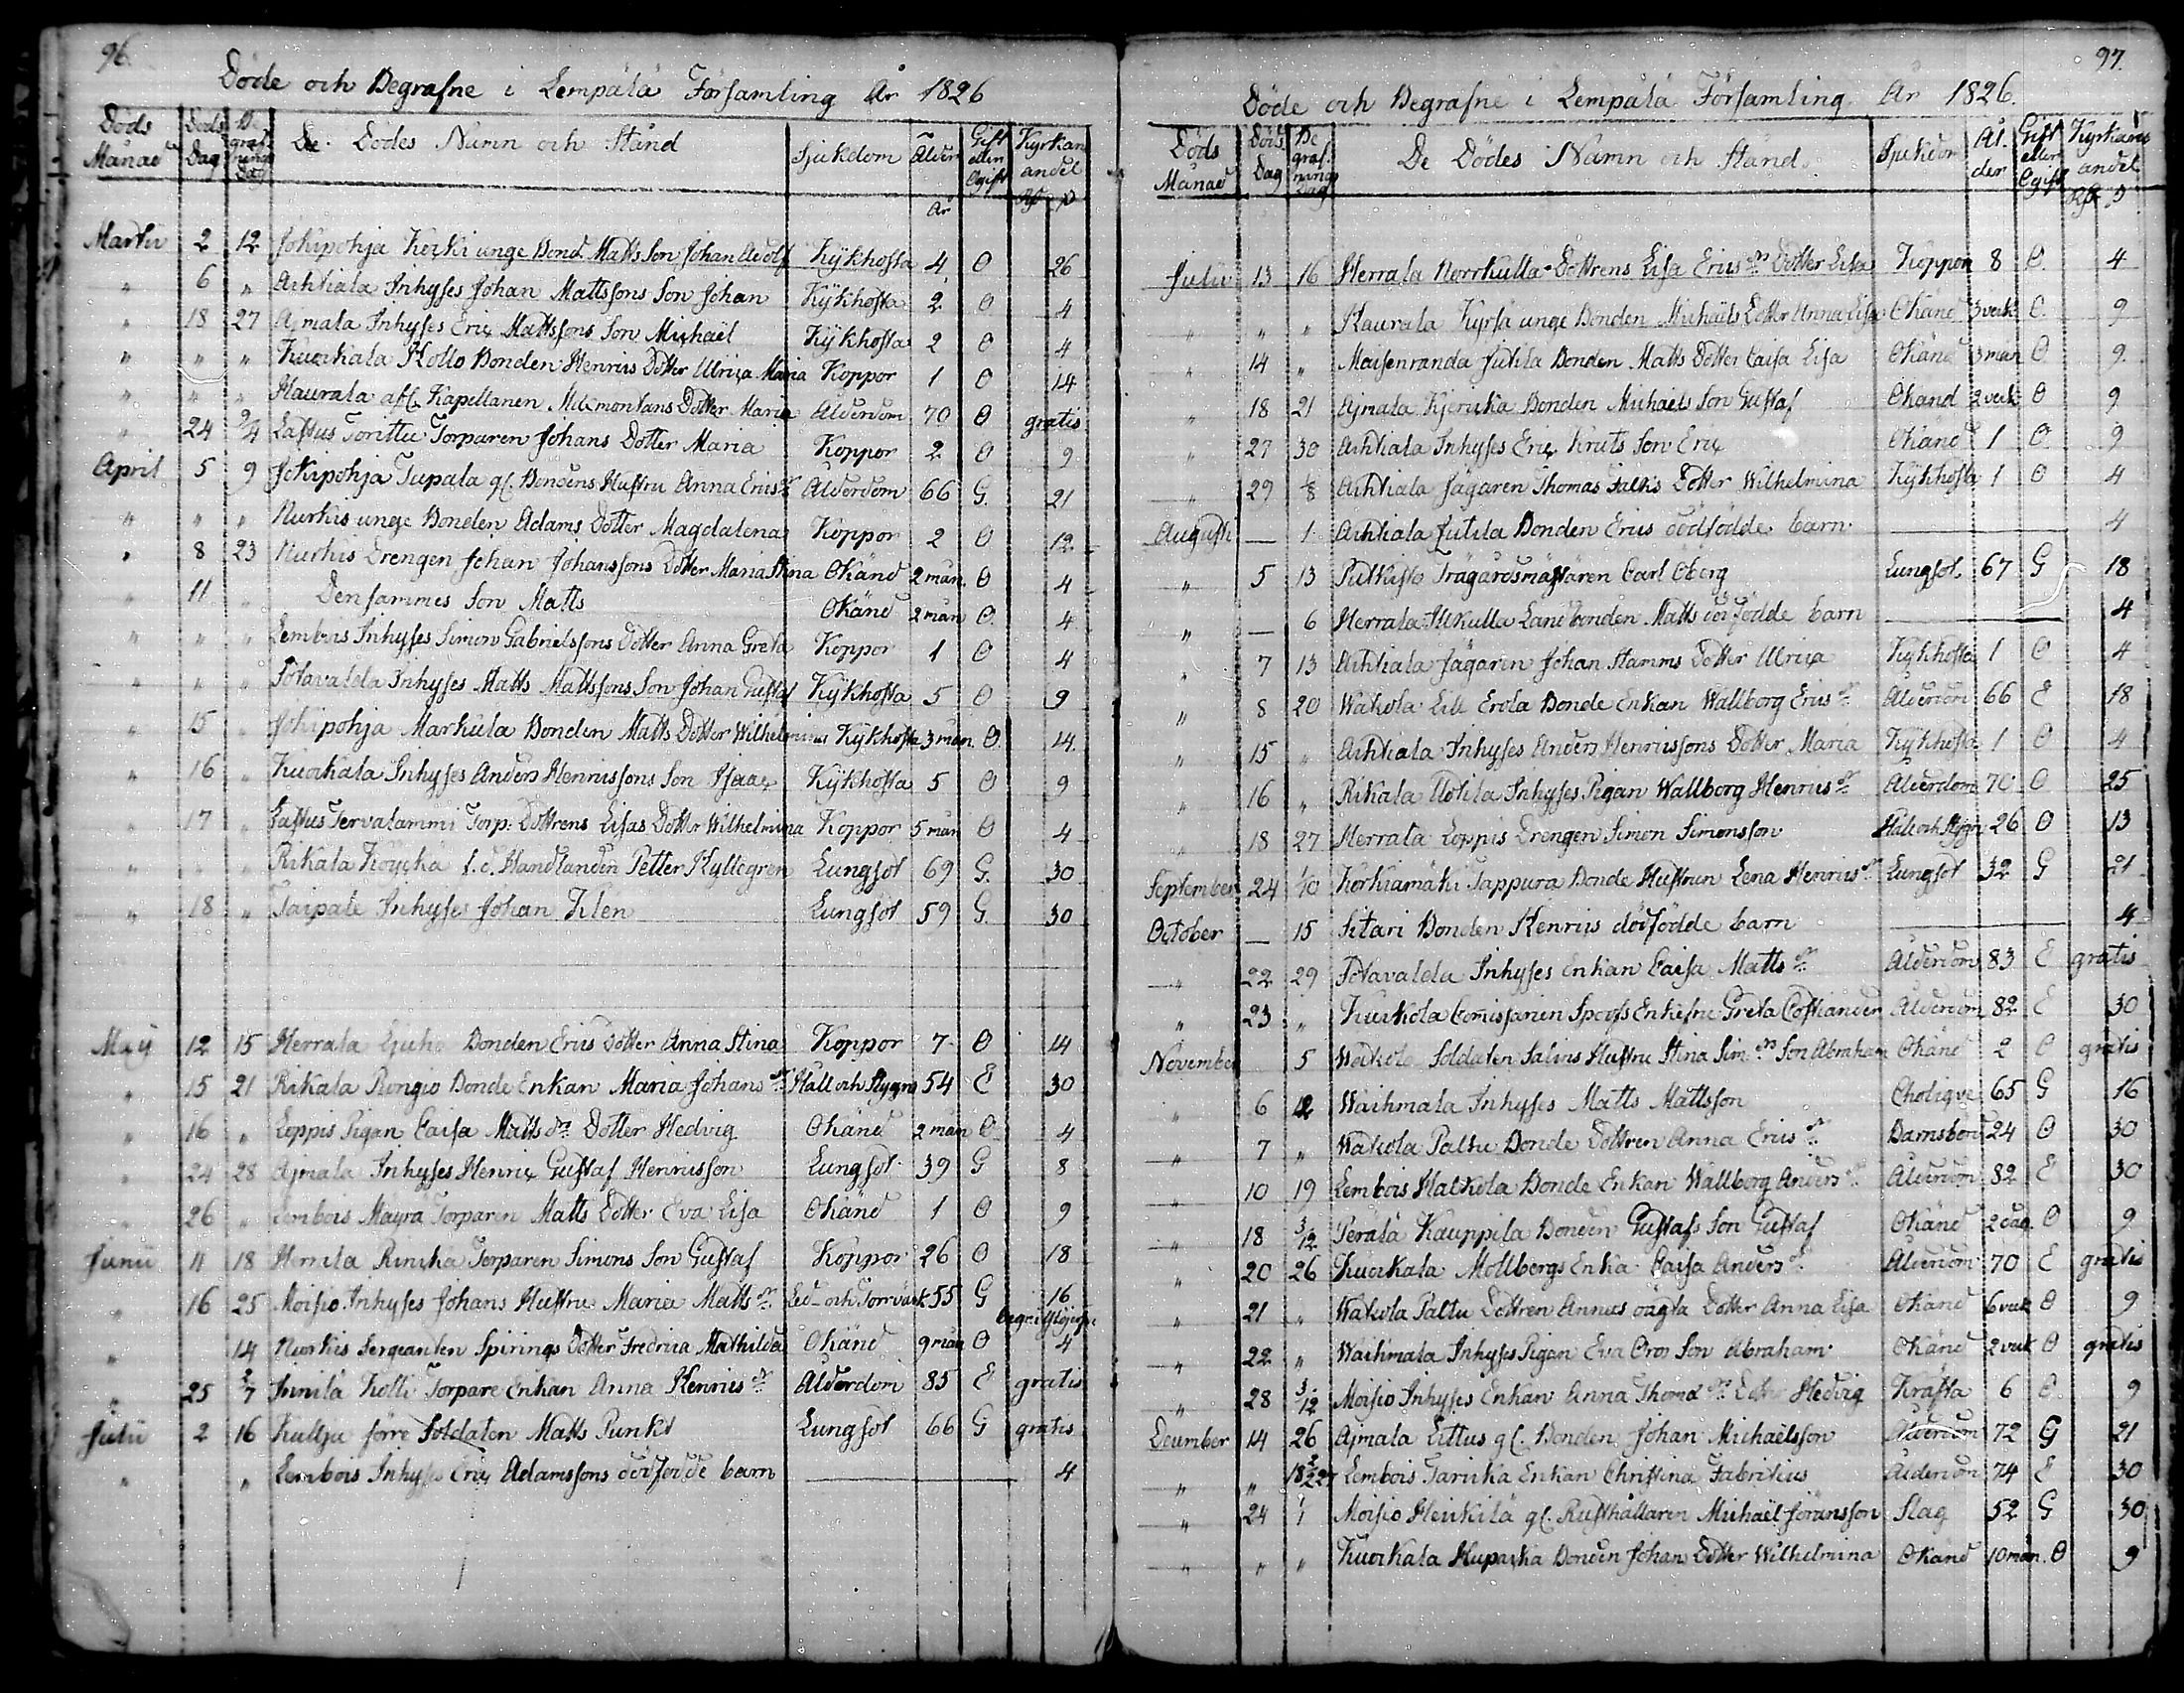 96.
Döde och Begrafne i Lempälä Församling År 1826
Döds Månad Döds Dag Begrafnings Dag De Dödes Namn och Stånd Sjukdom Ålder Gift eller Ogift Kyrkans andel
År
Martii 2 12 Jokipohja Keiki unge Bond. Matts Son Johan Adolf Kykhosta 4 O 26
" 6 " Ahtiala Inhyses Johan Mattssons Son Johan Kykhosta 2 O 4
" 18 27 Ajmala Inhyses Eric Mattssons Son Michaël Kykhosta 2 O 4
" " " Kuokala Hollo Bonden Henrics Dotter Ulrica Maria Koppor 1 O 14
" " " Haurala afl. Kapellanen Dotter Maria Ålderdom 70 O gratis
" 24 2/4 Lastus Torittu Torparen Johans Dotter Maria Koppor 2 O 9
April 5 9 Jokipohja Tupala gl. Bondens Hustru Anna Ericsdr Ålderdom 66 G. 21
" " " Nurkis unge Bonden Adams Dotter Magdalena Koppor 2 O 12
" 8 23 Nurkis Drengen Johan Johanssons Dotter Maria Stina Okänd 2 mån. O 4
" 11 " Densammes Son Matts Okänd 2 mån O. 4
" " " Lembois Inhyses Simon Gabrielssons Dotter Anna Greta Koppor 1 O 4
" " " Sotavalda Inhyses Matts Mattssons Son Johan Gustaf Kykhosta 5 O 9
" 15 " Jokipohja Markula Bonden Matts Dotter Wilhelmina Kykhosta 3 mån. O. 14.
" 16 " Kuokala Inhyses Anders Henricssons Son Isaac Kykhosta 5 O 9
" 17 " Lastus Tervalammi Torp: Dottrens Lisas Dotter Wilhelmina Koppor 5 mån O 4
" " " Rikala Köyckä f.d. Handlanden Petter Hyltegren Lungsot 69 G. 30
" 18 " Taipale Inhyses Johan Filén Lungsot 59 G. 30
Maij 12 15 Herrala Bonden Erics Dotter Anna Stina Koppor 7 O 14
" 15 21 Rikala Rongio Bonde Enkan Maria Johansdr Håll och Stygn 54 E 30
" 16 " Loppis Pigan Caisa Mattsdrs Dotter Hedvig Okänd 2 mån O 4
" 24 28 Ajmala Inhyses Henric Gustaf Henricsson Lungsot 39 G 8
" 26 " Lembois Mäyrä Torparen Matts Dotter Eva Lisa Okänd 1 O 9
Junii 11 18 Herrala Rinika Torparen Simons Son Gustaf Koppor 26 O 18
" 16 25 Moisio Inhyses Johans Hustru Maria Mattsdr Led- och Torrvärk 55 G 16
" 14 Nurkis Sergeanten Spirings Dotter Fredrica Mathilda Okänd 9 mån O 4
" 25 2/7 Innilä Kolli Torpare Enkan Anna Henricsdr Ålderdom 85 E gratis
Julii 2 16 Kuljii förre Soldaten Matts Punkt Lungsot 66 G gratis
" " Lembois Inhyses Eric Adamssons dödfödde barn — 4
97.
Döde och Begrafne i Lempälä Församling År 1826.
Döds Månad Döds Dag Begrafnings Dag De Dödes Namn och Stånd. Sjukdom Ålder Gift eller Ogift Kyrkans andel
Julii 13 16 Herrala Norrkulla Dottrens Lisa Ericsdrs Dotter Lisa Koppor 8 O 4
" " " Haurala Kyrsä unge Bonden Michaëls Dotter Anna Lisa Okänd 3 veck O. 9
" 14 " Maisenranda Jutila Bonden Matts Dotter Caisa Lisa Okänd 3 mån O. 9.
" 18 21 Ajmala Bonden Michaels Son Gustaf Okänd 2 veck O 9
" 27 30 Ahtiala Inhyses Eric Knuts Son Eric Okänd 1 O 9
" 29 1/8 Ahtiala Jägaren Thomas Falks Dotter Wilhelmina Kykhosta 1 O 4
Augusti — 1. Ahtiala Jutila Bonden Erics dödfödde barn — 4
" 5 13 Trägårdsmästaren Carl Öberg Lungsot. 67 G 18
" — 6 Herrala Landbonden Matts dödfödde barn — 4
" 7 13 Ahtiala Jägaren Johan Stamms Dotter Ulrica Kykhosta 1 O 4
" 8 20 Wakola Lill Erola Bonde Enkan Wallborg Ericsdr Ålderdom 66 E 18
" 15 " Ahtiala Inhyses Anders Henricssons Dotter Maria Kykhosta 1 O 4
" 16 " Rikala Inhyses Pigan Wallborg Henricsdr Ålderdom 70 O 25
" 18 27 Herrala Loppis Drengen Simon Simonsson Håll och Stygn 26 O 13
September 24 1/10 Korkiamäki Tappura Bonde Hustrun Lena Henricsdr Lungsot 32 G 21
October — 15 Sitari Bonden Henrics dödfödde barn — 4
" 22 29 Sotavalda Inhyses Enkan Caisa Mattsdr Ålderdom 83 E gratis
" 23 " Kuokola Comissarien Spoofs Enkefru Greta Costiander Ålderdom 82 E 30
November 5 Wakola Soldaten Salins Hustru Stina Sim.drs Son Abraham Okänd 2 O gratis
" 6 12 Waihmala Inhyses Matts Mattsson Cholique 65 G 16
" 7 " Wakola Paltu Bonde Dottren Anna Ericsdr Barnsbörd 24 O 30
" 10 19 Lembois Halkola Bonde Enkan Wallborg Andersdr Ålderdom 82 E 30
" 18 3/12 Perälä Kauppila Bonden Gustafs Son Gustaf Okänd 2 dag. O 9
" 20 26 Kuokala Mollbergs Enka Caisa Andersdr Ålderdom 70 E gratis
" 21 " Wakola Paltu Dottren Annas oägta Dotter Anna Lisa Okänd 6 veck O 9
" 22 " Waihmala Inhyses Pigan Eva Oros Son Abraham Okänd 2 veck O gratis
" 28 3/12 Moisio Inhyses Enkan Anna Thomædrs Dotter Hedvig Kräfta 6 O. 9
December 14 26 Ajmala Littus gl. Bonden Johan Michaëlsson Ålderdom 72 G 21
" " Lembois Enkan Christina Fabritius Ålderdom 74 E 30
" 24 1/1 Moisio Heickilä gl. Rusthållaren Michaël Jöransson Slag 52 G 30
" " " Kuokala Huparka Bonden Johan Dotter Wilhelmina Okänd 10 mån. O 9